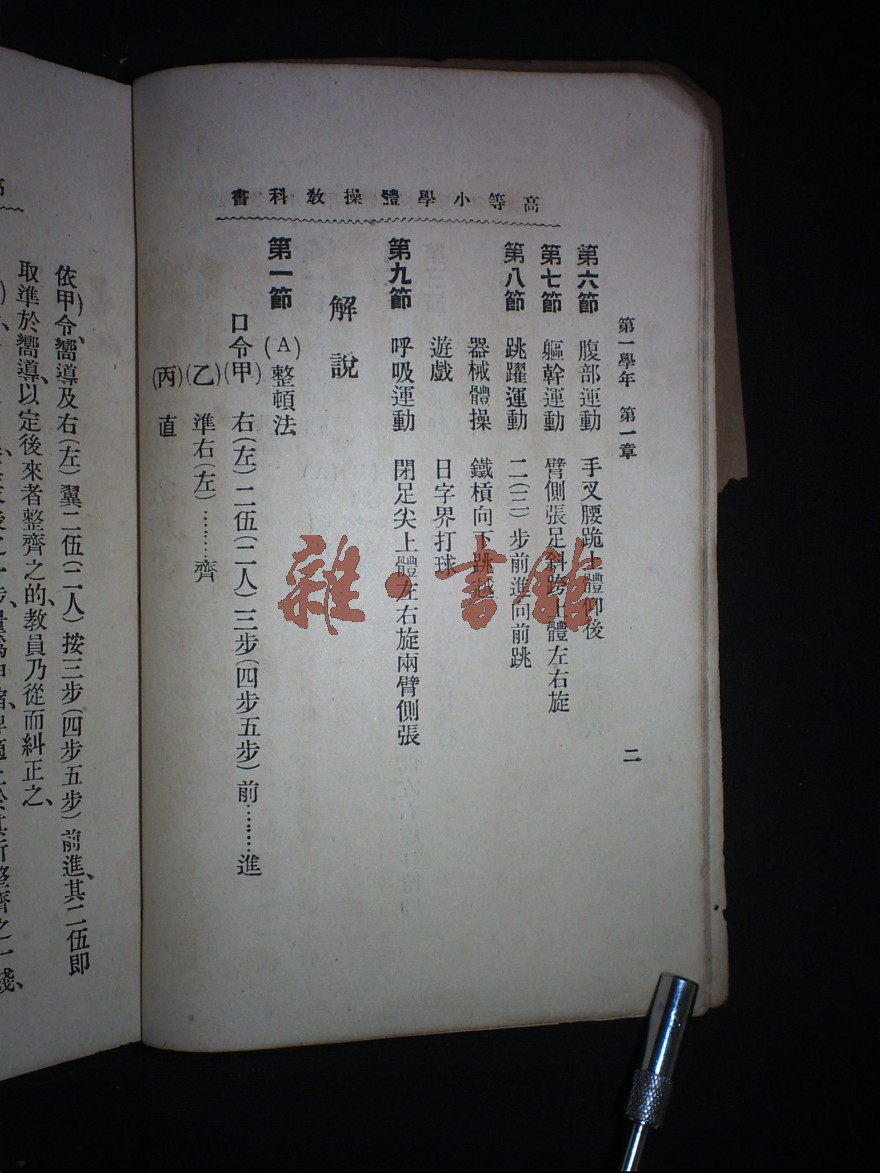 高等小學體操教科書
第一學年 第一章
二
第六節 腹部運動 手叉腰跪上體仰後
第七節 軀幹運動 臂側張足斜跨上體左右旋
第八節 跳躍運動 二(三)步前進向前跳
器械體操 鐵槓向下跳越
遊戲 日字界打球
第九節 呼吸運動 閉足尖上體左右旋兩臂側張
解說
第一節 (A)整頓法
口令(甲) 右(左)二伍(二人)三步(四步五步)前………進
(乙) 準右(左)………齊
(丙) 直
依甲令、嚮導及右(左)翼二伍(二人)按三步(四步五步)前進、其二伍即
取準於嚮導、以定後來者整齊之的、教員乃從而糾正之、
雜·書館